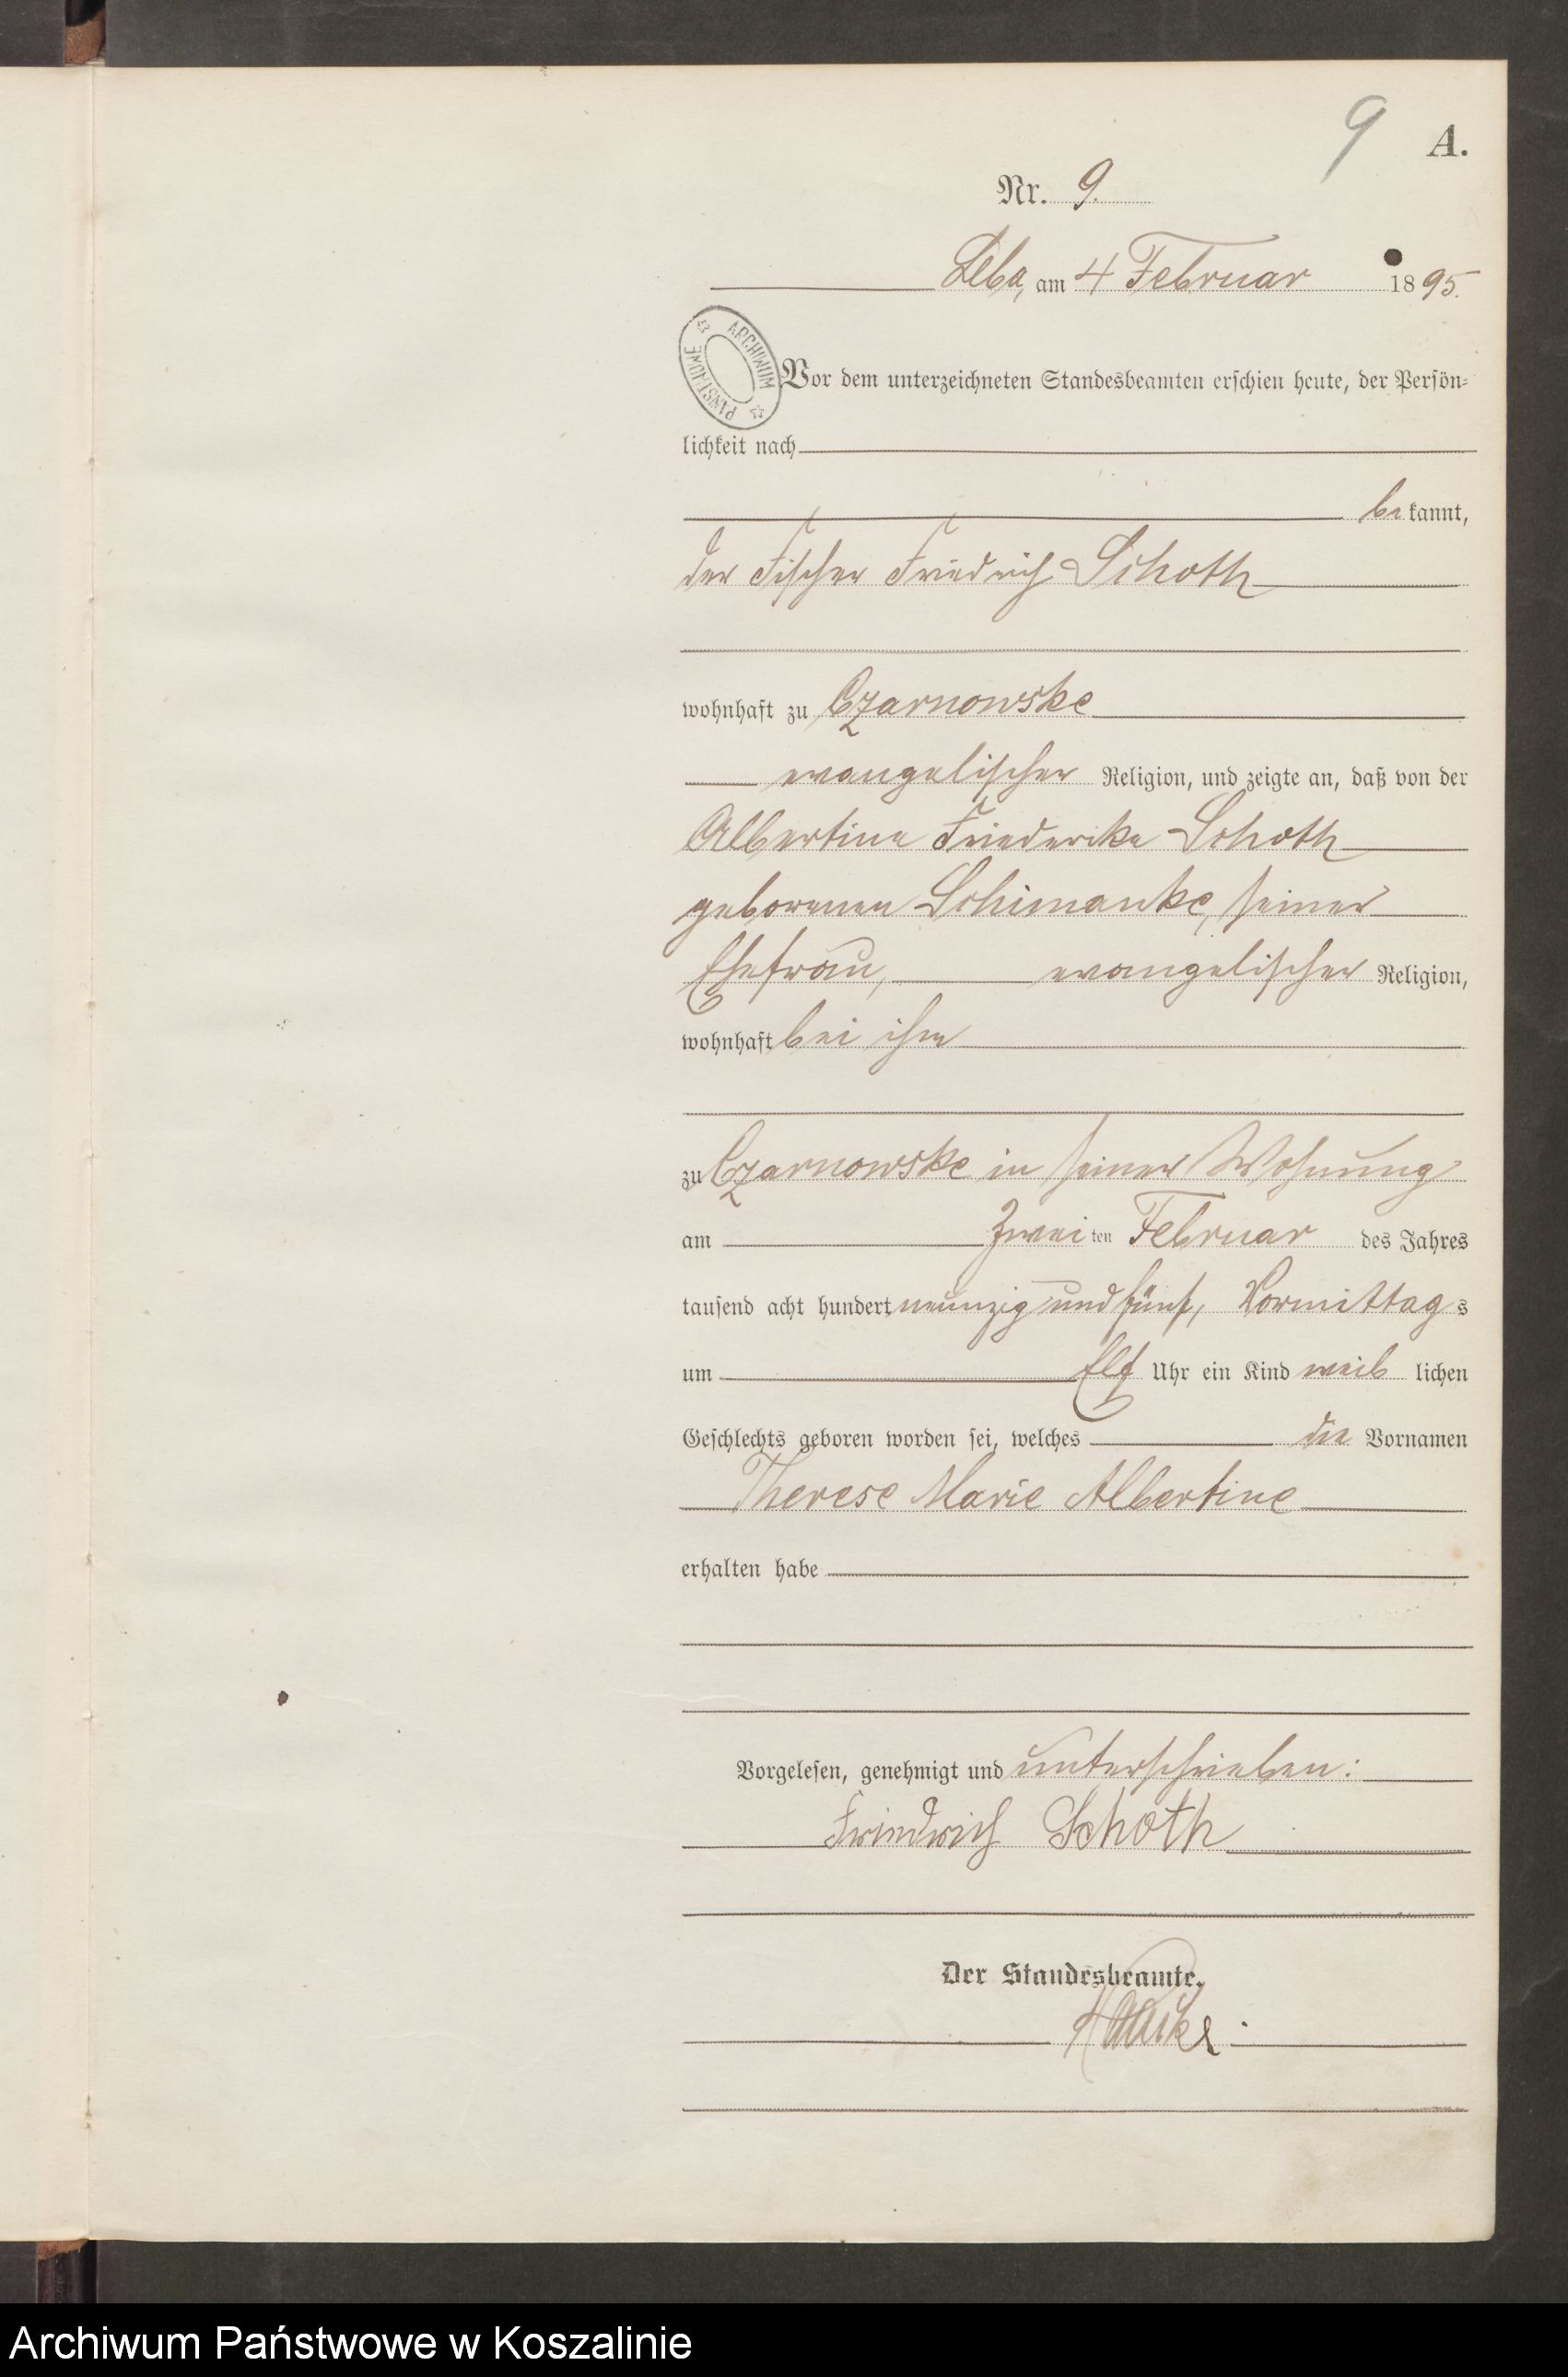 9 A.
Nr. 9.
Leba, am 4 Februar 1895.
ARCHIWUM PAŃSTWOWE
Vor dem unterzeichneten Standesbeamten erschien heute, der Persön-
lichkeit nach
bekannt,
der Fischer Friedrich Schoth
wohnhaft zu Czarnowske
evangelischer Religion, und zeigte an, daß von der
Albertine Friederike Schoth
geborenen Schimanke, seiner
Ehefrau, evangelischer Religion,
wohnhaft bei ihm
zu Czarnowske in seiner Wohnung
am zweiten Februar des Jahres
tausend acht hundert neunzig und fünf, Vormittags
um Elf Uhr ein Kind weiblichen
Geschlechts geboren worden sei, welches die Vornamen
Therese Marie Albertine
erhalten habe
Vorgelesen, genehmigt und unterschrieben:
Friedrich Schoth
Der Standesbeamte.
Archiwum Państwowe w Koszalinie